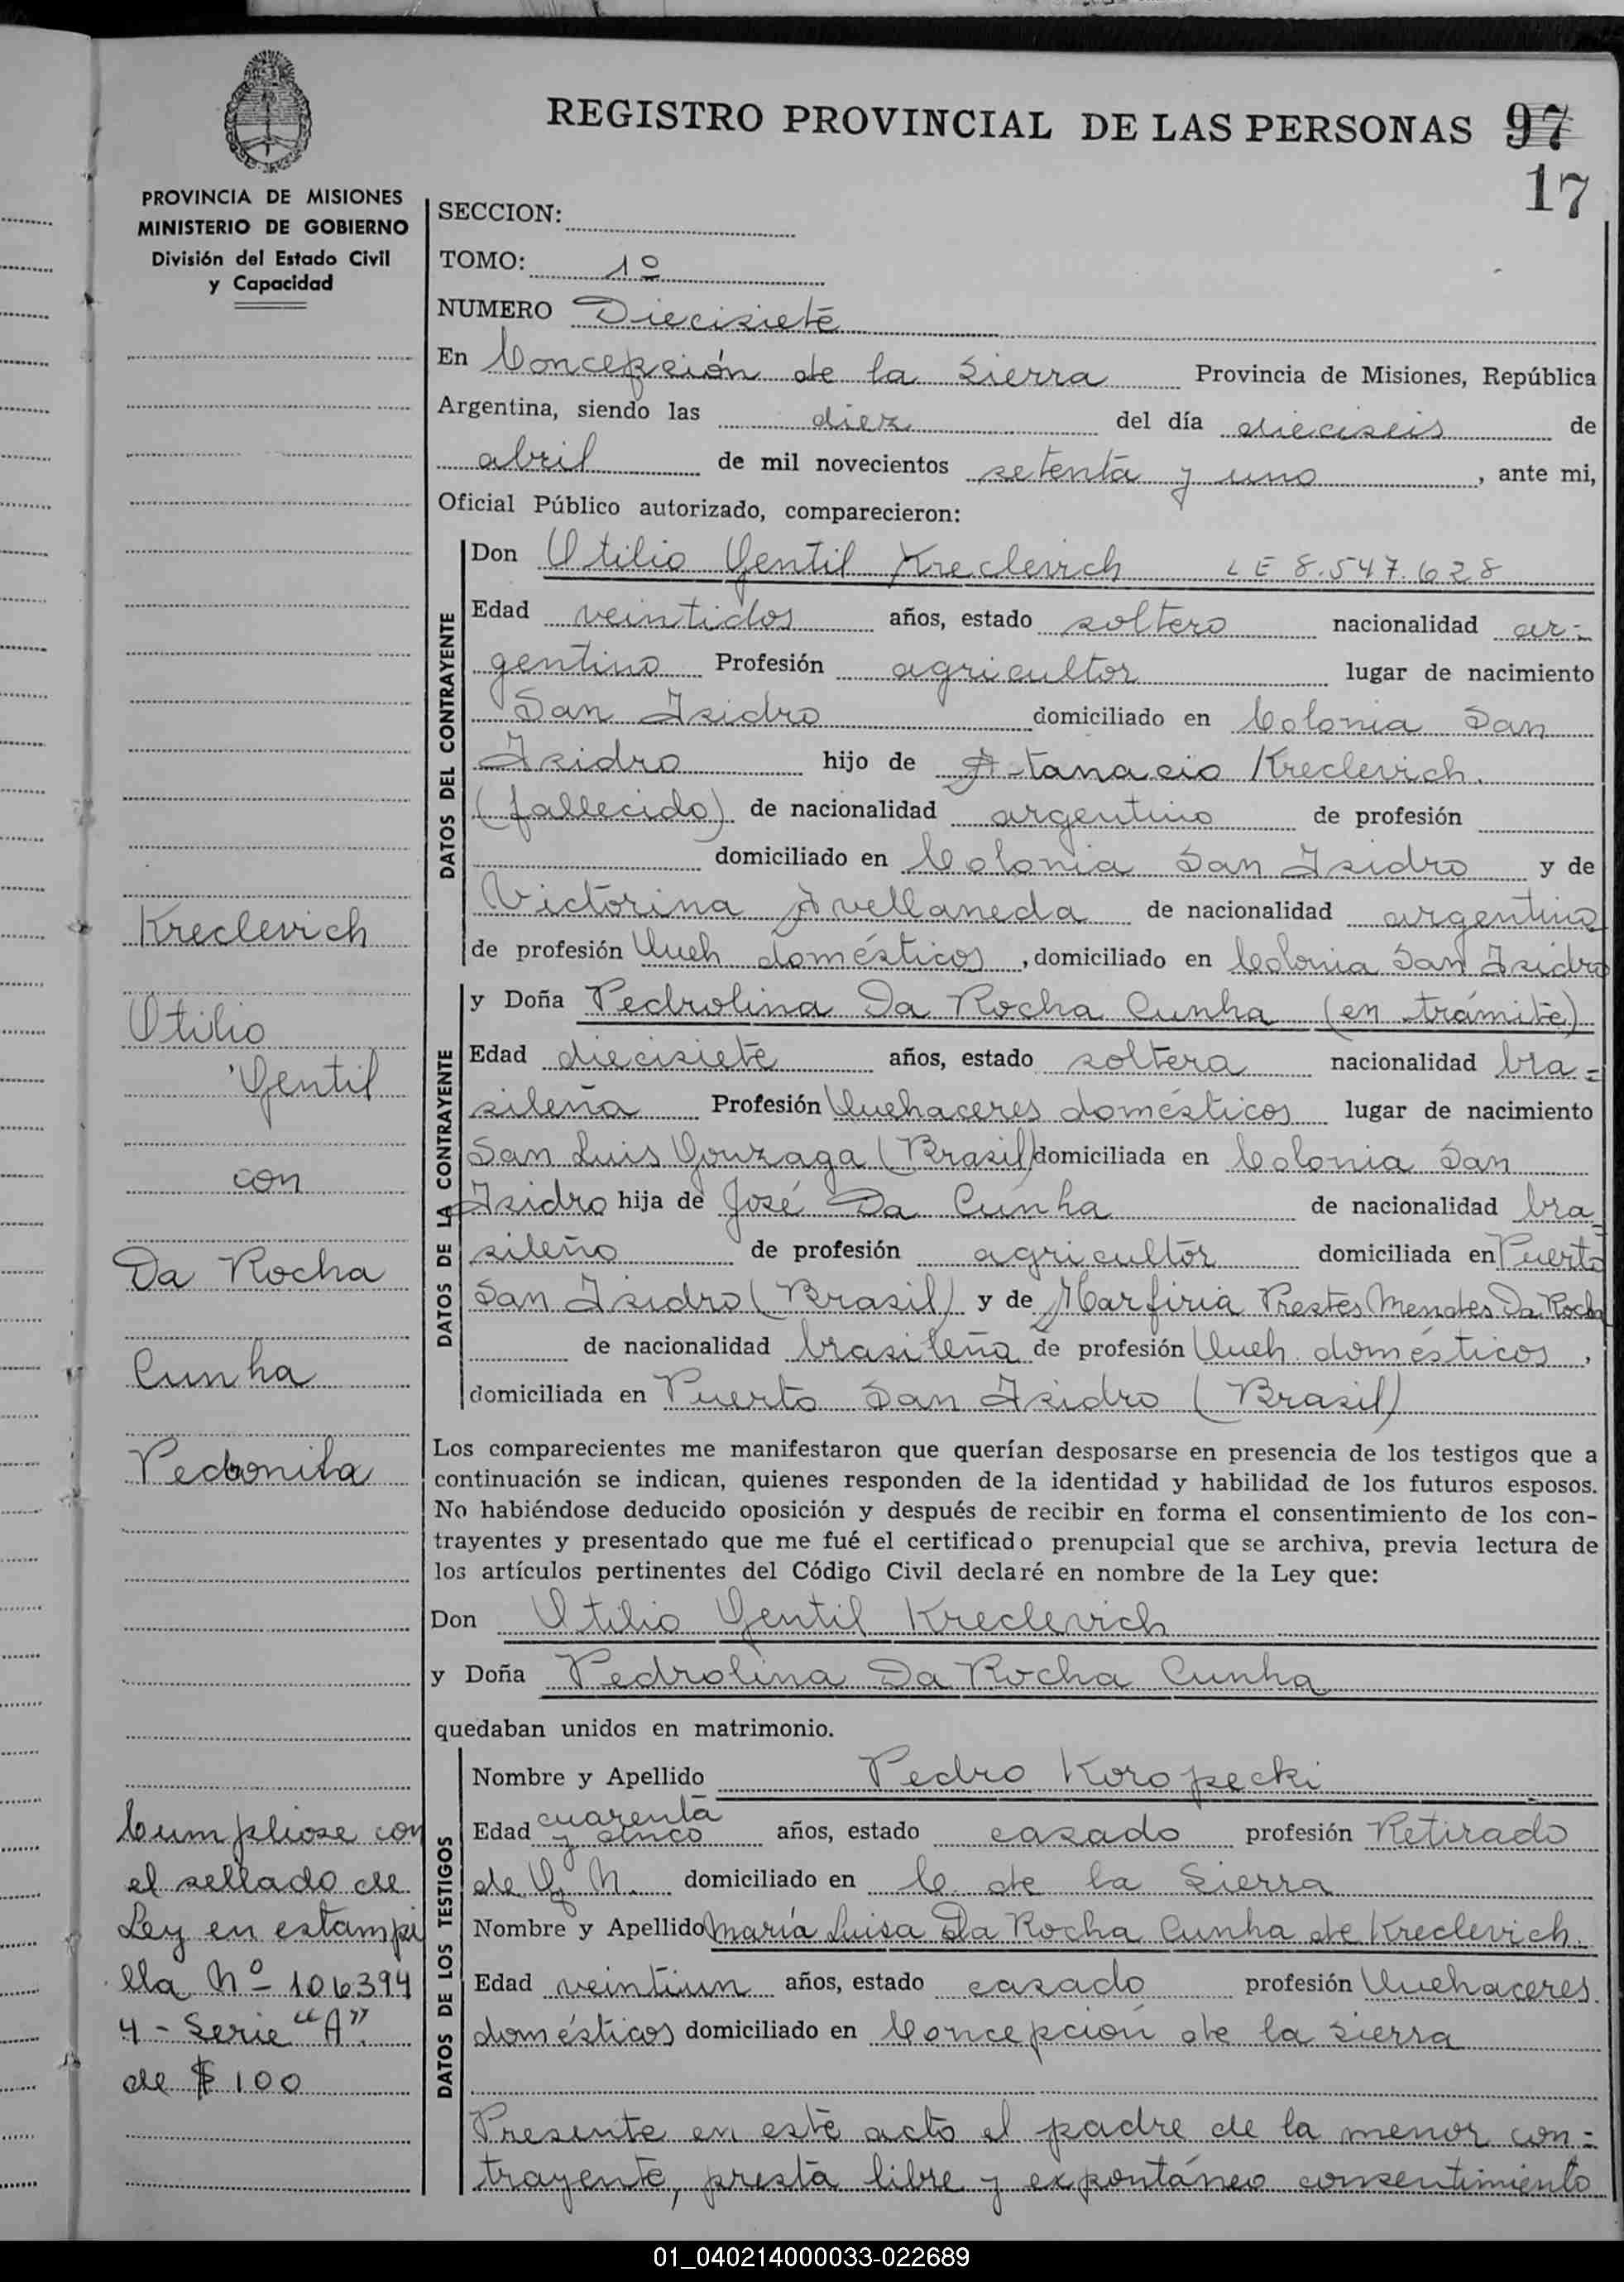 REGISTRO PROVINCIAL DE LAS PERSONAS 97
17
PROVINCIA DE MISIONES
MINISTERIO DE GOBIERNO
División del Estado Civil
y Capacidad
SECCION:
TOMO: 1º
NUMERO Diecisiete
En Concepción de la Sierra Provincia de Misiones, República
Argentina, siendo las diez del día dieciseis de
abril de mil novecientos setenta y uno, ante mi,
Oficial Público autorizado, comparecieron:
DATOS DEL CONTRAYENTE
Don Utilio Gentil Kreclevich LE 8.547.628
Edad veintidos años, estado soltero nacionalidad ar-
gentino Profesión agricultor lugar de nacimiento
San Isidro domiciliado en Colonia San
Isidro hijo de Atanacio Kreclevich.
(fallecido) de nacionalidad argentino de profesión
domiciliado en Colonia San Isidro y de
Victorina Avellaneda de nacionalidad argentina
de profesión Queh domésticos, domiciliado en Colonia San Isidro
DATOS DE LA CONTRAYENTE
y Doña Pedrolina Da Rocha Cunha (en trámite)
Edad diecisiete años, estado soltera nacionalidad bra=
sileña Profesión Quehaceres domésticos lugar de nacimiento
San Luis Gonzaga (Brasil) domiciliada en Colonia San
Isidro hija de José Da Cunha de nacionalidad bra-
sileño de profesión agricultor domiciliada en Puerto
San Isidro (Brasil) y de Marfiria Prestes Mendes Da Rocha
de nacionalidad brasileña de profesión Queh. domésticos,
domiciliada en Puerto San Isidro (Brasil)
Los comparecientes me manifestaron que querían desposarse en presencia de los testigos que a
continuación se indican, quienes responden de la identidad y habilidad de los futuros esposos.
No habiéndose deducido oposición y después de recibir en forma el consentimiento de los con-
trayentes y presentado que me fué el certificado prenupcial que se archiva, previa lectura de
los artículos pertinentes del Código Civil declaré en nombre de la Ley que:
Don Utilio Gentil Kreclevich
y Doña Pedrolina Da Rocha Cunha
quedaban unidos en matrimonio.
DATOS DE LOS TESTIGOS
Nombre y Apellido Pedro Koropecki
Edad cuarenta y cinco años, estado casado profesión Retirado
de G. N. domiciliado en C. de la Sierra
Nombre y Apellido María Luisa Da Rocha Cunha de Kreclevich.
Edad veintiun años, estado casado profesión Quehaceres
domésticos domiciliado en Concepción de la Sierra
Presente en este acto el padre de la menor con=
trayente, presta libre y expontáneo consentimiento
Kreclevich
Utilio
Gentil
con
Da Rocha
Cunha
Pedronila
Cumpliose con
el sellado de
Ley en estampi
lla Nº 106394
4 - Serie "A".
de $ 100
01_040214000033-022689